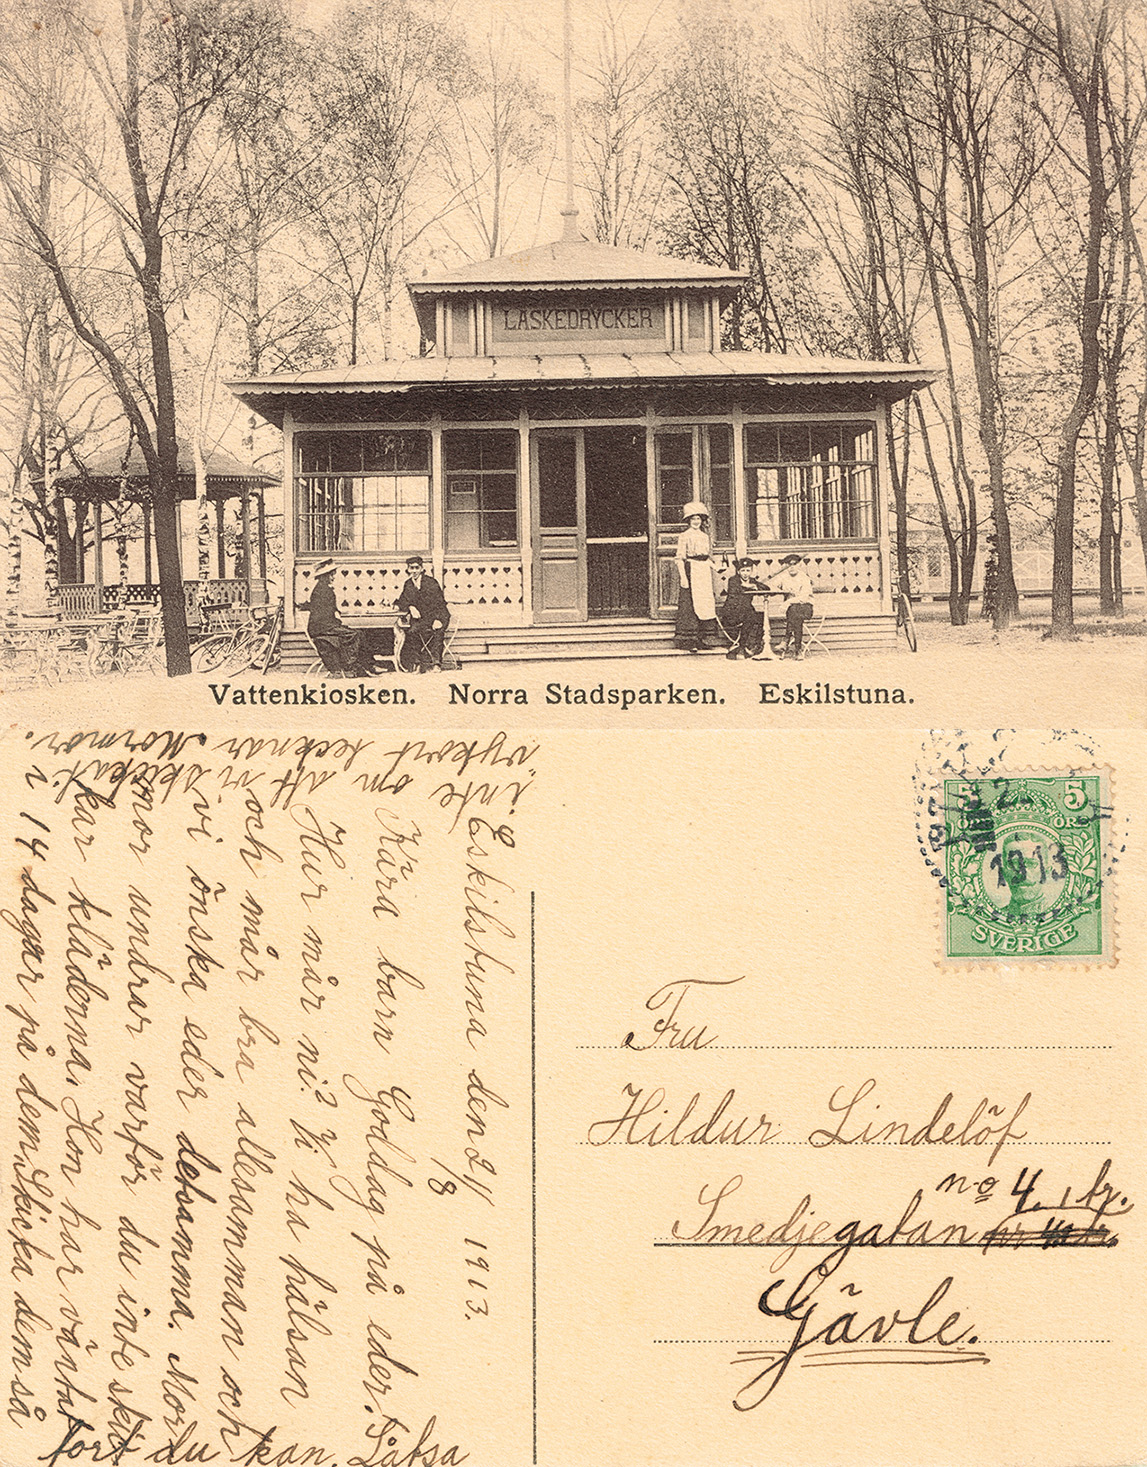 LÄSKEDRYCKER
Vattenkiosken. Norra Stadsparken. Eskilstuna.
Eskilstuna den 2/8 1913.
Kära barn Goddag på eder.
Hur mår ni? Vi ha hälsan
och mår bra allesamman och
vi önska eder detsamma. Mor
mor undrar varför du inte skic
kar kläderna. Hon har väntat
i 14 dagar på dem. Skicka dem så
fort du kan. Låtsa
inte om att vi skickat
vykort tecknar Mormor.
5 5
ÖRE ÖRE
1913
SVERIGE
Fru
Hildur Lindelöf
no 4. 1 tr.
Smedjegatan
Gävle.